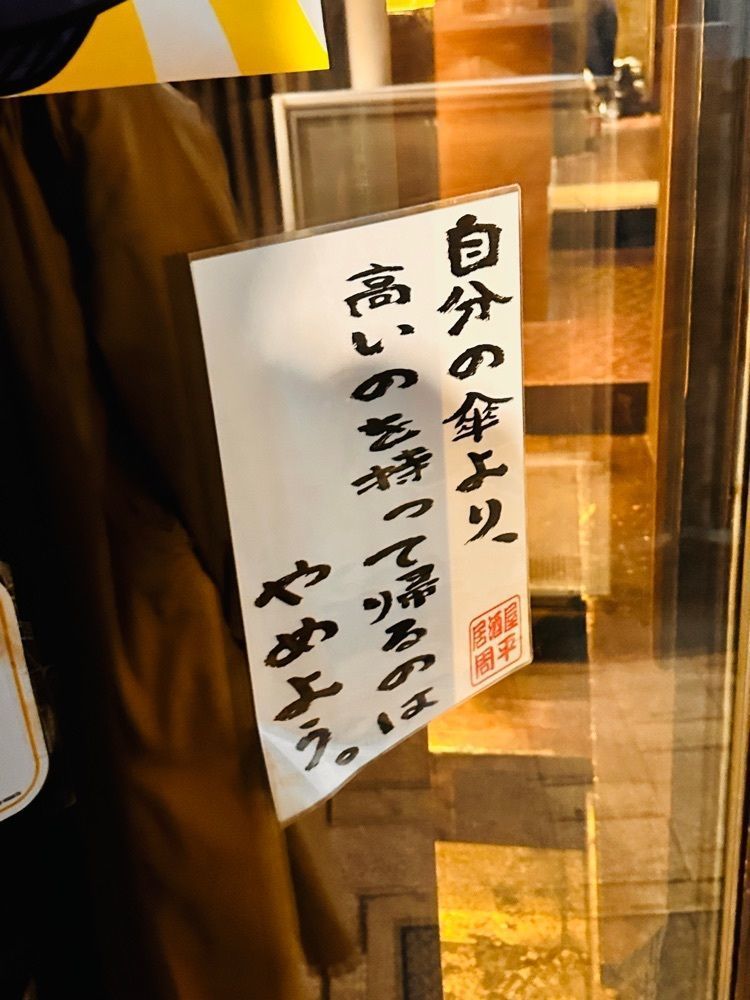 自分の傘より、
高いのを持って帰るのは
やめよう。
居酒屋
周平